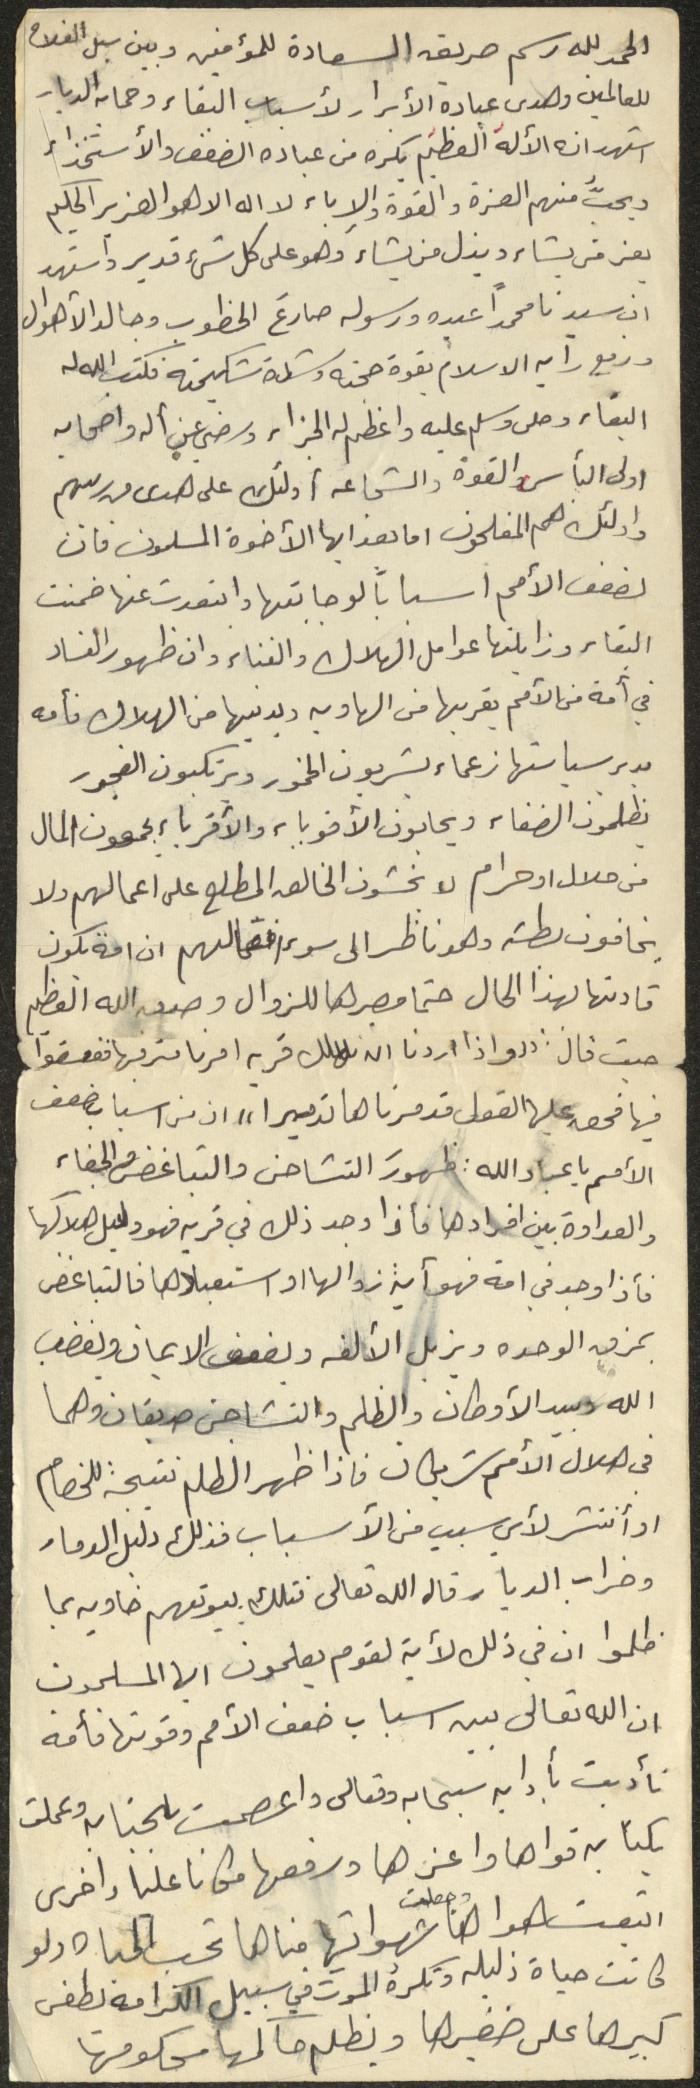 الحمد لله رسم طريق السعادة للمؤمنين وبين سبل الفلاح
للعالمين وهدى عباده الأبرار لأسباب البقاء وحماية الديار
اشهد ان الأله العظيم يكره من عباده الضعف والأستخذاء
ويحبُّ منهم العزة والقوة والإباء لا اله الا هو العزيز الحكيم
يعز من يشاء ويذل من يشاء وهو على كل شيء قدير واشهد
ان سيدنا محمداً عبده ورسوله صارع الخطوب وجالد الأهوال
ورفع راية الاسلام بقوة حجته وشدة شكيمته فكتب الله له
البقاء وصلى وسلم عليه واعظم له الجزاء ورضي عن أله واصحابه
اولى البأس والقوة والشجاعه أولئك على هدى من ربهم
واولئك هم المفلحون اما بعد ايها الأخوة المسلمون فان
لضعف الأمم اسباباً لو جانبتها وابتعدت عنها ضمنت
البقاء وزايلتها عوامل الهلاك والفناء وان ظهور الفساد
في أمة من الأمم يقربها من الهاويه ويدنيها من الهلاك فأمه
يدير سياستها زعماء يشربون الخمور ويرتكبون الفجور
يظلمون الضعفاء ويحابون الأقوياء والأقرباء يجمعون المال
من حلال او حرام لا يخشون الخالق المطلع على اعمالهم ولا
يخافون بطشه وهو ناظر الى سوء افعالهم ان امة يكون
قادتها بهذا الحال حتما مصيرها للزوال وصدق الله العظيم
حيث قال: "واذا اردنا ان نهلك قريه امرنا مترفيها ففسقوا
فيها فحق عليها القول فدمرناها تدميرا" ان من اسباب ضعف
الأمم يا عباد الله: ظهورَ التشاحن والتباغض والجفاء
والعداوة بين افرادها فأذا وجد ذلك في قريه فهو دليل هلاكها
فأذا وجد في امة فهو آية زوالها او استعبادها فالتباغض
يمزق الوحده ويزيل الألفه ويضعف الايمان ويغضب
الله ويبيد الأوطان والظلم والتشاحن صديقان وهما
في هلاك الأمم شريكان فاذا ظهر الظلم نتيجة للخصام
او أنتشر لأي سبب من الأسباب فذلك دليل الدمار
وخراب الديار قال الله تعالى فتلك بيوتهم خاويه بما
ظلموا ان في ذلك لأية لقوم يعلمون ايها المسلمون
ان الله تعالى بين اسباب ضعف الأمم وقوتها فأمة
تأدبت بأدابه سبحانه وتعالى واعتصمت بجنابه وعملت
بكتابه قواها واعزها ورفعها مكانا عليا واخرى
اتبعت اهواءها وجعلت شهواتها مناها تحب الحياة ولو
كانت حياة ذليله وتكره الموت في سبيل الكرامة يطغى
كبيرها على صغيرها ويظلم حاكمها محكومها